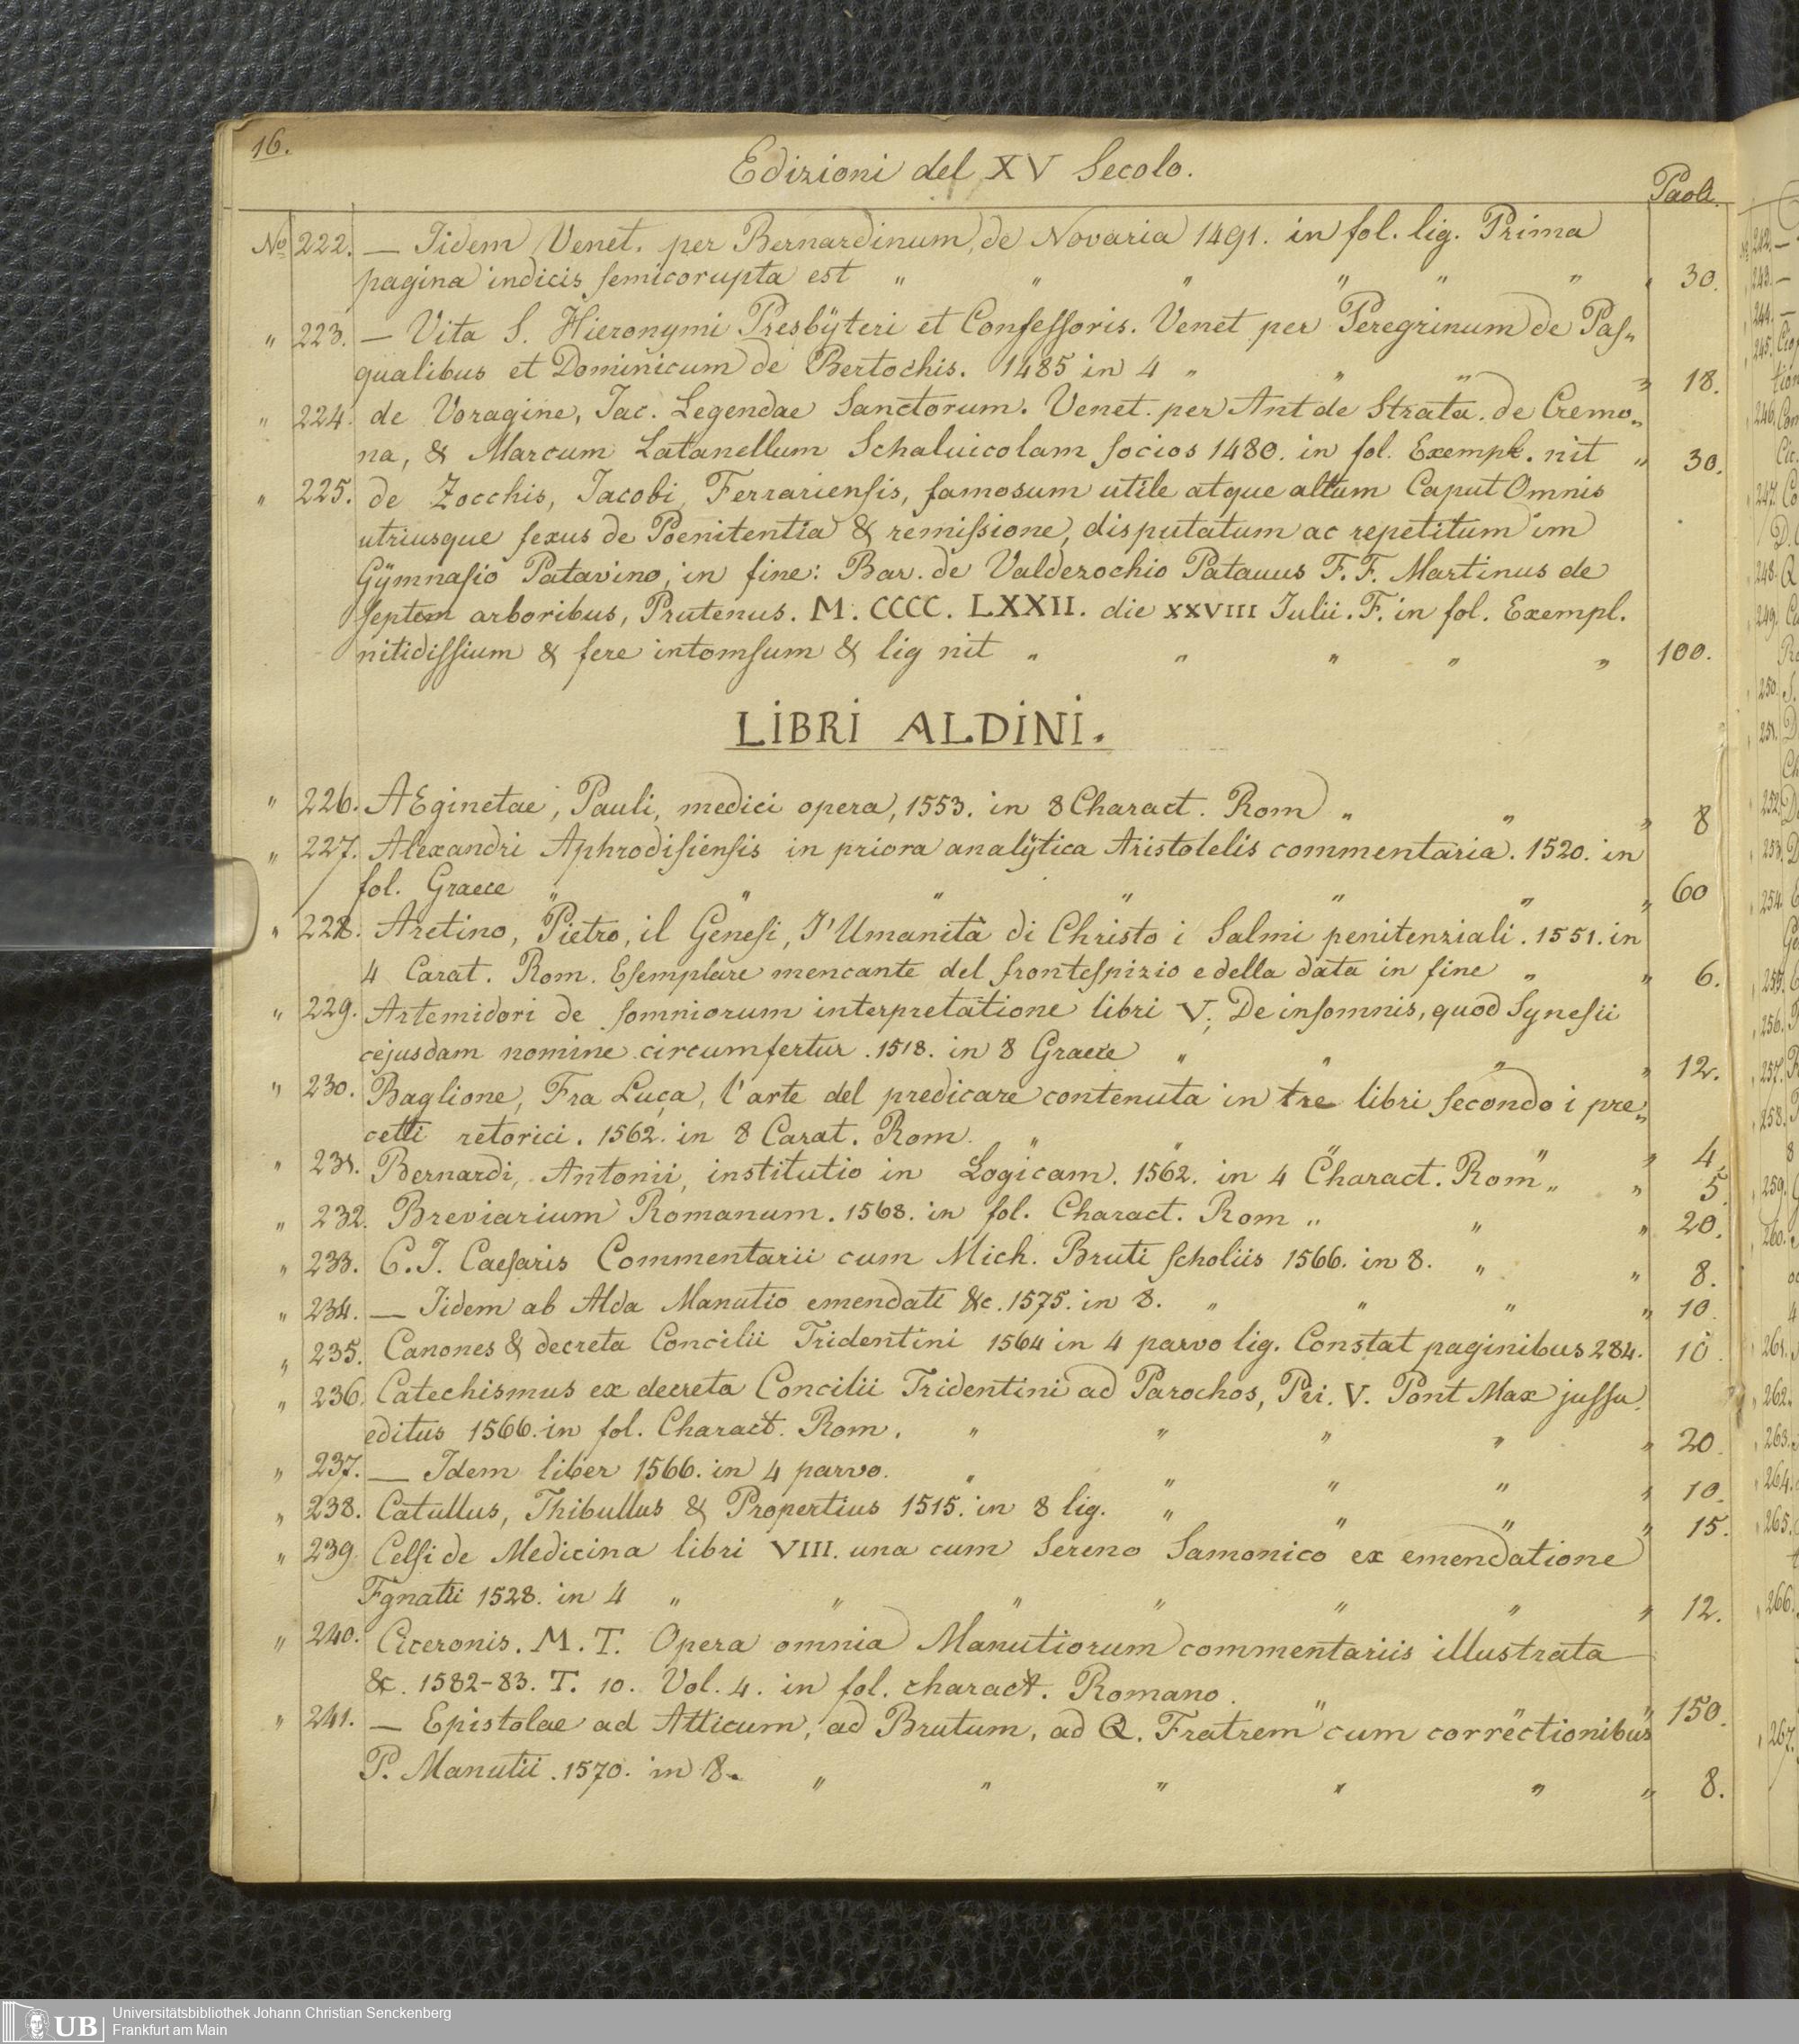 16.
Edizioni del XV Secolo.
Paoli
No 222. — Iidem Venet. per Bernardinum, de Novaria 1491. in fol. lig. Prima
pagina indicis semicorupta est „ „ „ „ „ „ „ 30.
„ 223. — Vita S. Hieronymi Presbÿteri et Confessoris. Venet per Peregrinum de Pas„
qualibus et Dominicum de Bertochis. 1485 in 4 „ „ „ „ 18.
„ 224. de Voragine, Jac. Legendae Sanctorum. Venet. per Ant de Strata. de Cremo„
na, & Marcum Latanellum Schaluicolam socios 1480. in fol. Exempl. nit „ 30.
„ 225. de Zocchis, Jacobi, Ferrariensis, famosum utile atque altum Caput Omnis
utriusque sexus de Poenitentia & remissione, disputatum ac repetitum im
Gÿmnasio Patavino, in fine: Bar. de Valdezochio Patauus F. F. Martinus de
septem arboribus, Prutenus. M. CCCC. LXXII. die XXVIII Julii. F. in fol. Exempl.
nitidissium & fere intomsum & lig nit „ „ „ „ „ 100.
LIBRI ALDINI.
„ 226. AEginetae, Pauli, medici opera, 1553. in 8 Charact. Rom „ „ „ 8
„ 227. Alexandri Aphrodisiensis in priora analÿtica Aristotelis commentaria. 1520. in
fol. Graece „ „ „ „ „ „ „ 60
„ 228. Aretino, Pietro, il Genesi, l'Umanità di Christo i Salmi penitenziali. 1551. in
4 Carat. Rom. Esemplare mencante del frontespizio e della data in fine „ „ 6.
„ 229. Artemidori de somniorum interpretatione libri V, De insomnis, quod Synesii
cejusdam nomine circumfertur. 1518. in 8 Graece „ „ „ „ 12.
„ 230. Baglione, Fra Luca, l'arte del predicare contenuta in tre libri secondo i pre„
cetti retorici. 1562. in 8 Carat. Rom. „ „ „ „ „ 4
„ 231. Bernardi, Antonii, institutio in Logicam. 1562. in 4 Charact. Rom „ „ 5.
„ 232. Breviarium Romanum. 1568. in fol. Charact. Rom „ „ „ 20.
„ 233. C. J. Caesaris Commentarii cum Mich. Bruti scholiis 1566. in 8. „ „ 8.
„ 234. — Iidem ab Alda Manutio emendati &c. 1575. in 8. „ „ „ „ 10.
„ 235. Canones & decreta Concilii Tridentini 1564 in 4 parvo lig. Constat paginibus 284. 10.
„ 236. Catechismus ex decreta Concilii Tridentini ad Parochos, Pii. V. Pont Max jussu
editus 1566. in fol. Charact. Rom. „ „ „ „ „ 20.
„ 237. — Idem liber 1566. in 4 parvo. „ „ „ „ „ 10.
„ 238. Catullus, Thibullus & Propertius 1515. in 8 lig. „ „ „ „ 15.
„ 239. Celsi de Medicina libri VIII. una cum Sereno Samonico ex emendatione
Egnatii 1528. in 4 „ „ „ „ „ „ „ 12.
„ 240. Ciceronis. M. T. Opera omnia Manutiorum commentariis illustrata
&c. 1582-83. T. 10. Vol. 4. in fol. charact. Romano. „ „ „ 150.
„ 241. — Epistolae ad Atticum, ad Brutum, ad Q. Fratrem cum correctionibus
P. Manutii. 1570. in 8. „ „ „ „ „ „ 8.
UB
Universitätsbibliothek Johann Christian Senckenberg
Frankfurt am Main